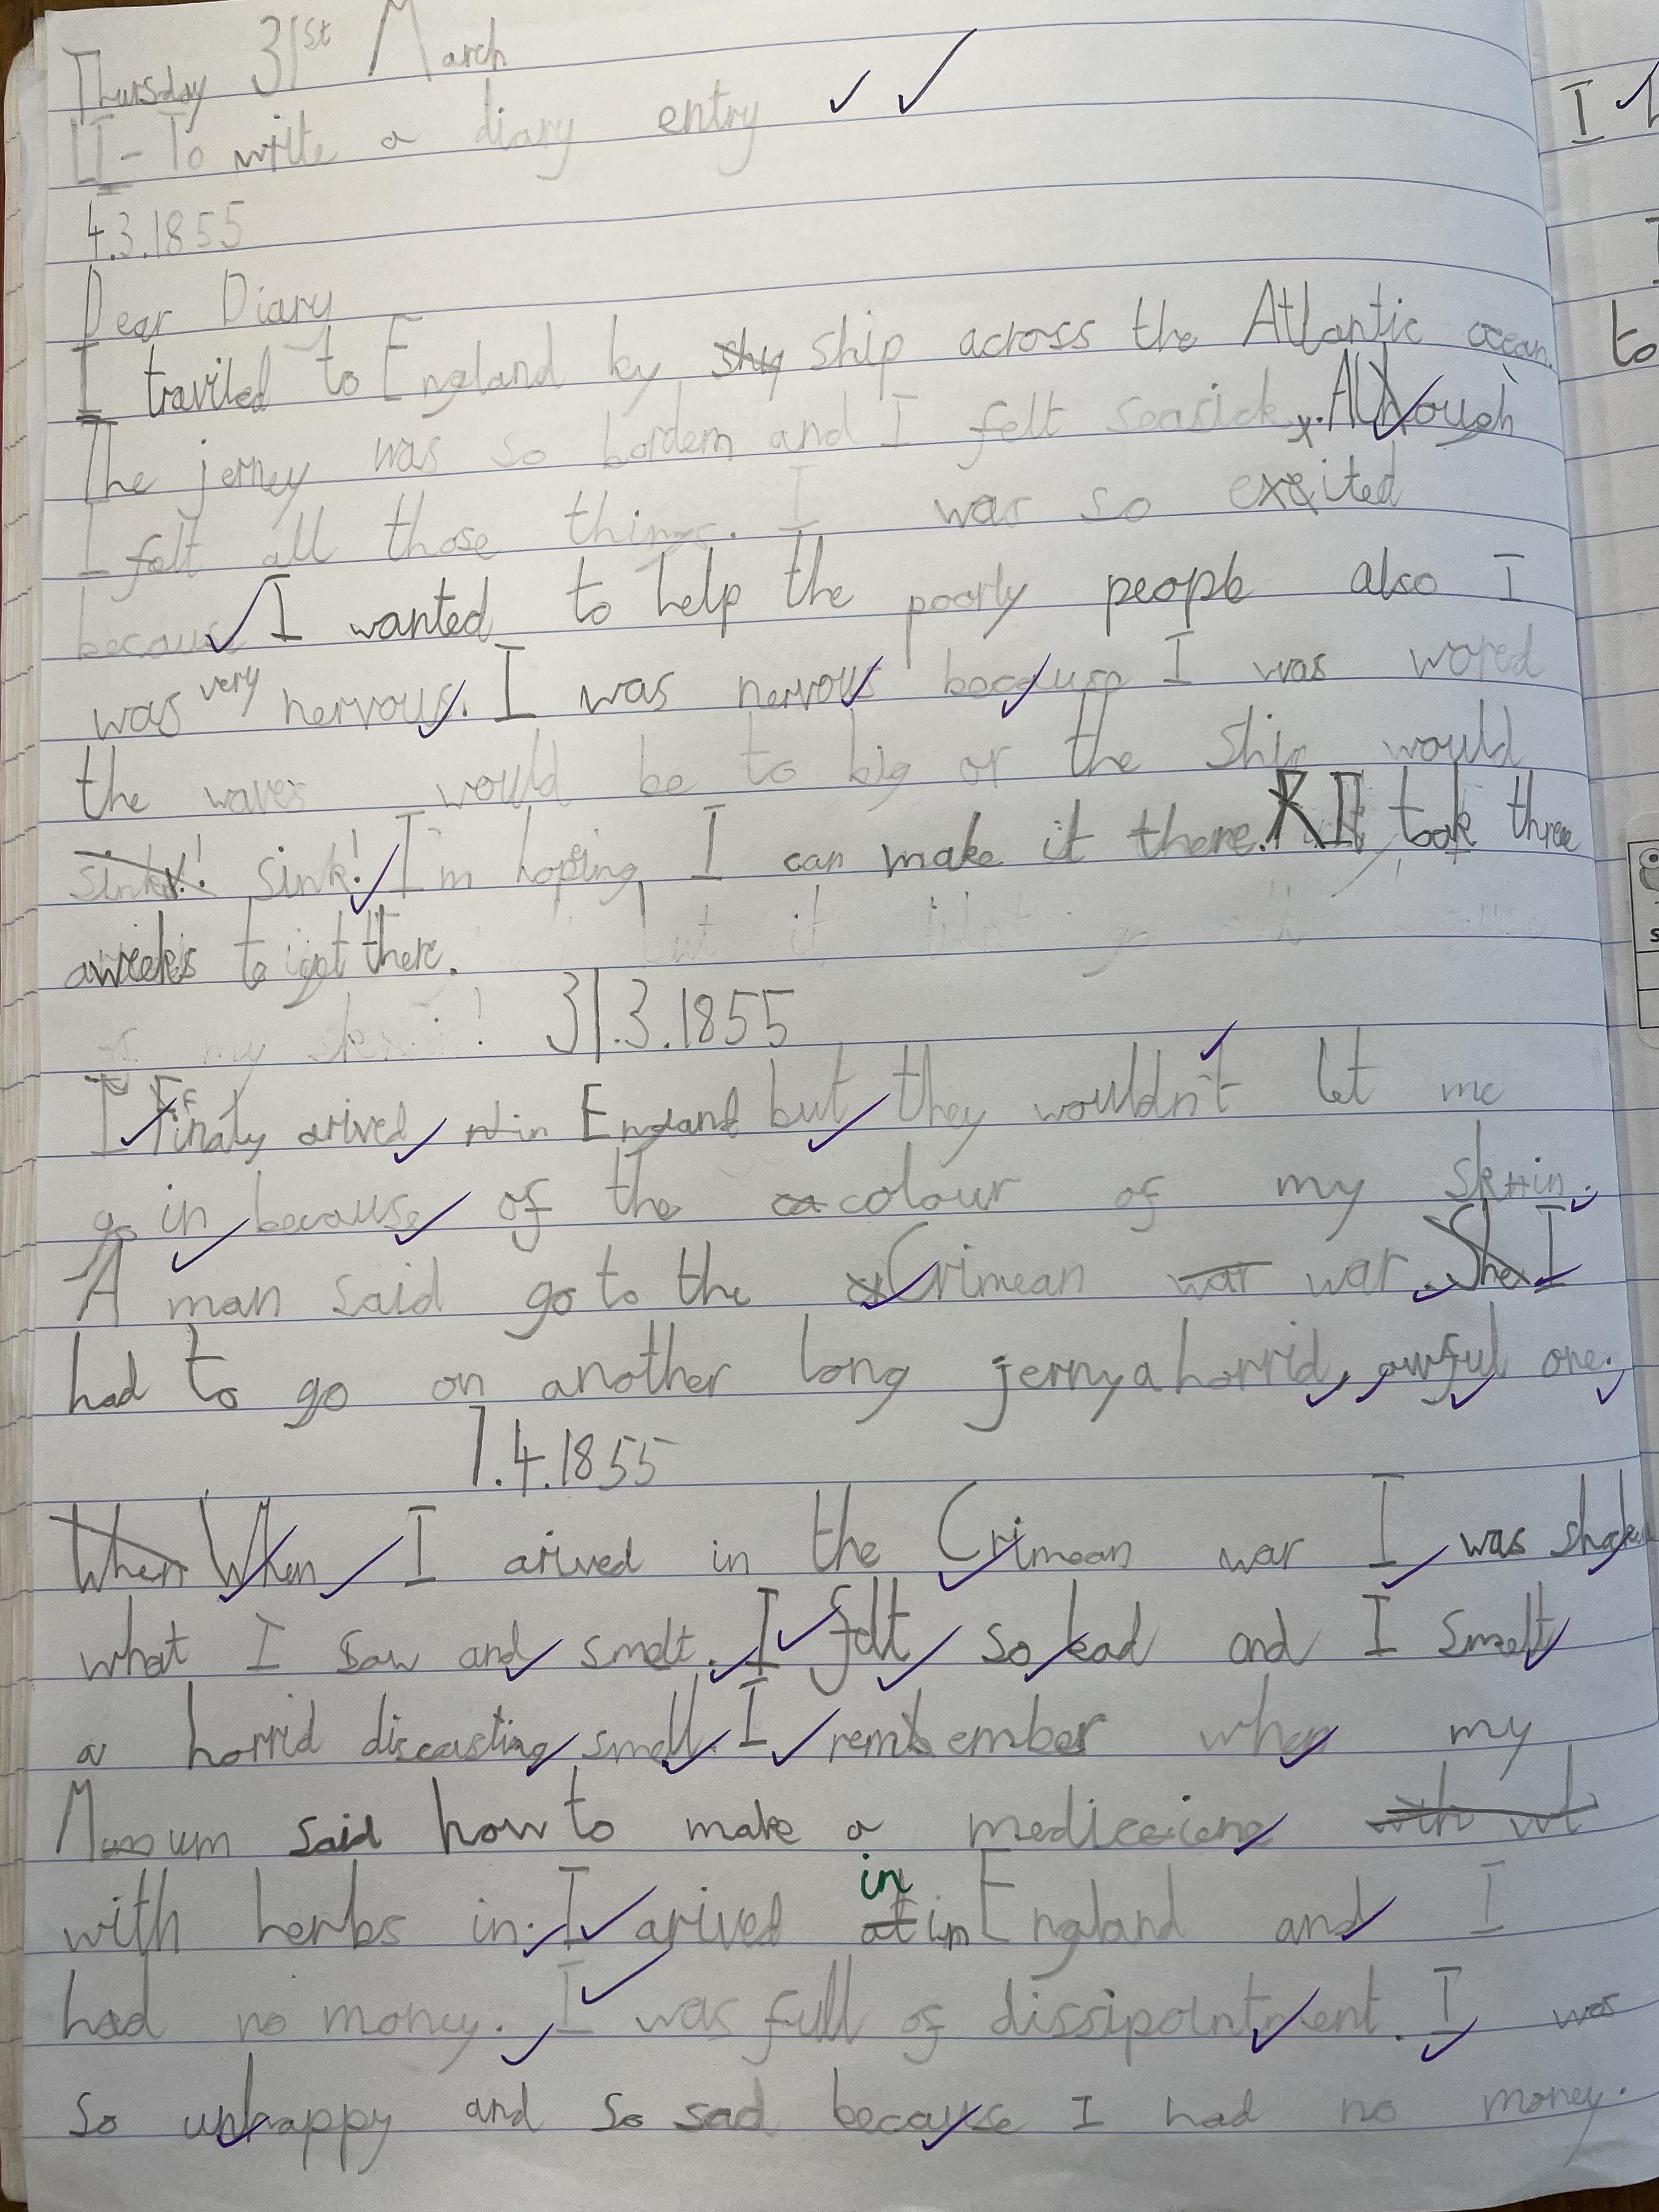 Thursday 31st March
LI - To write a diary entry
4.3.1855
Dear Diary
I traviled to England by ship across the Atlantic ocean.
The jerney was so bordem and I felt seasick. Although
I felt all those things. I was so excited
because I wanted to help the poorly people also I
was very nervous. I was nervous because I was wored
the waves would be to big or the ship would
sink! I'm hoping I can make it there. It took three
weeks to get there.
31.3.1855
I Finaly arived in England but they wouldn't let me
go in because of the colour of my skin.
A man said go to the Crimean war. I
had to go on another long jerny a horrid, awful one.
7.4.1855
When I arived in the Crimean war I was
what I saw and smelt. I felt so bad and I smelt
a horrid discasting smell. I remember when my
Mum said how to make a
with herbs in. I arived in England and I
had no money. I was full of dissipointment. I was
so unhappy and so sad because I had no money.